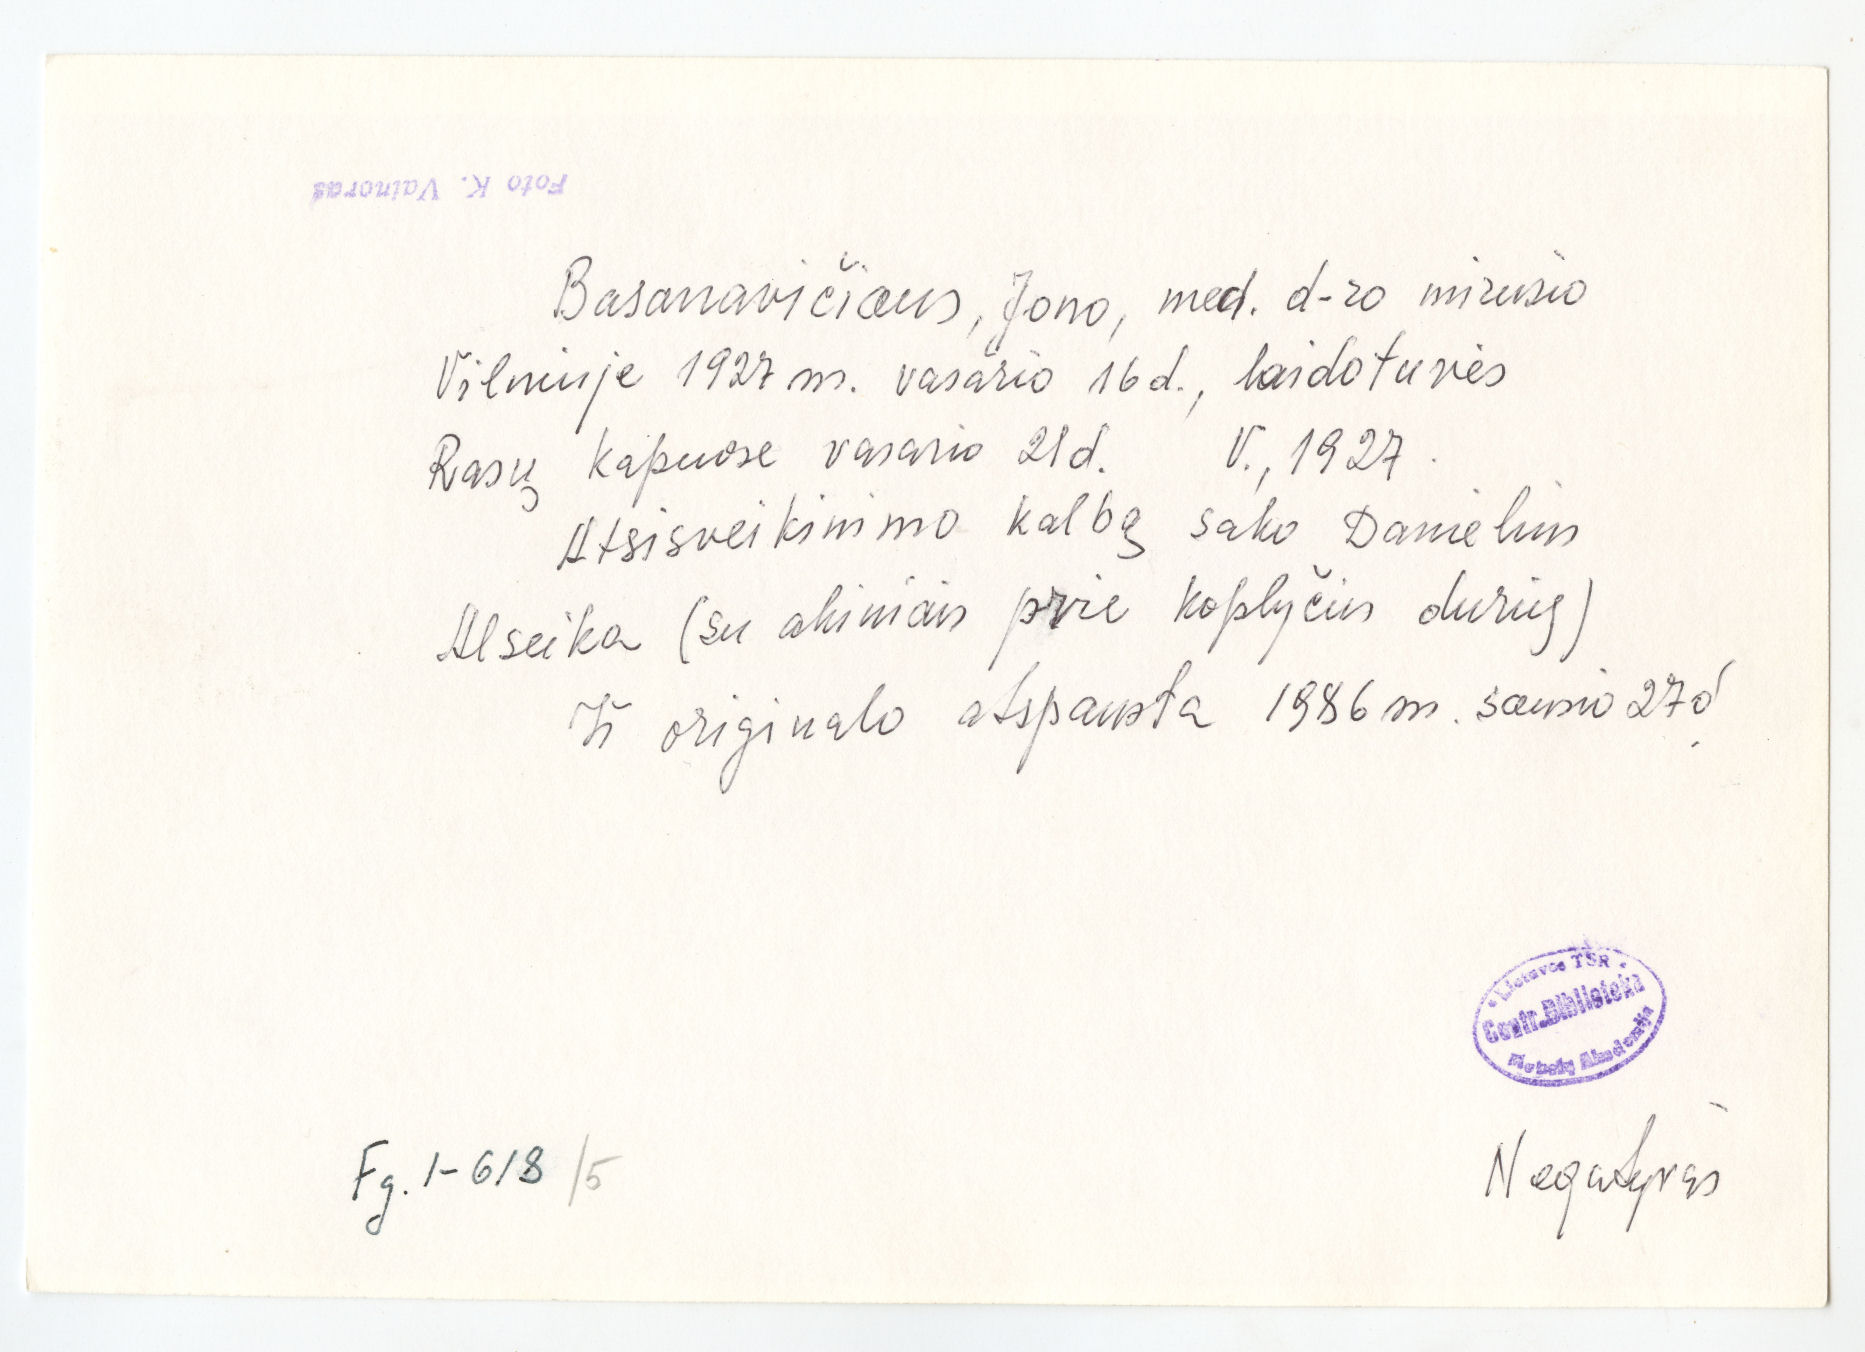 Foto K. Vainoras
Basanavičiaus, Jono, med. d-ro mirusio
Vilniuje 1927 m. vasario 16 d., laidotuvės
Rasų kapuose vasario 21 d. V., 1927.
Atsisveikinimo kalbą sako Danielius
Alseika (su akiniais prie koplyčios durių)
Iš originalo atspausta 1986 m. sausio 27 d.
Lietuvos TSR
Centr. Biblioteka
Mokslų Akademija
Fg. 1-618/5
Negatyvas